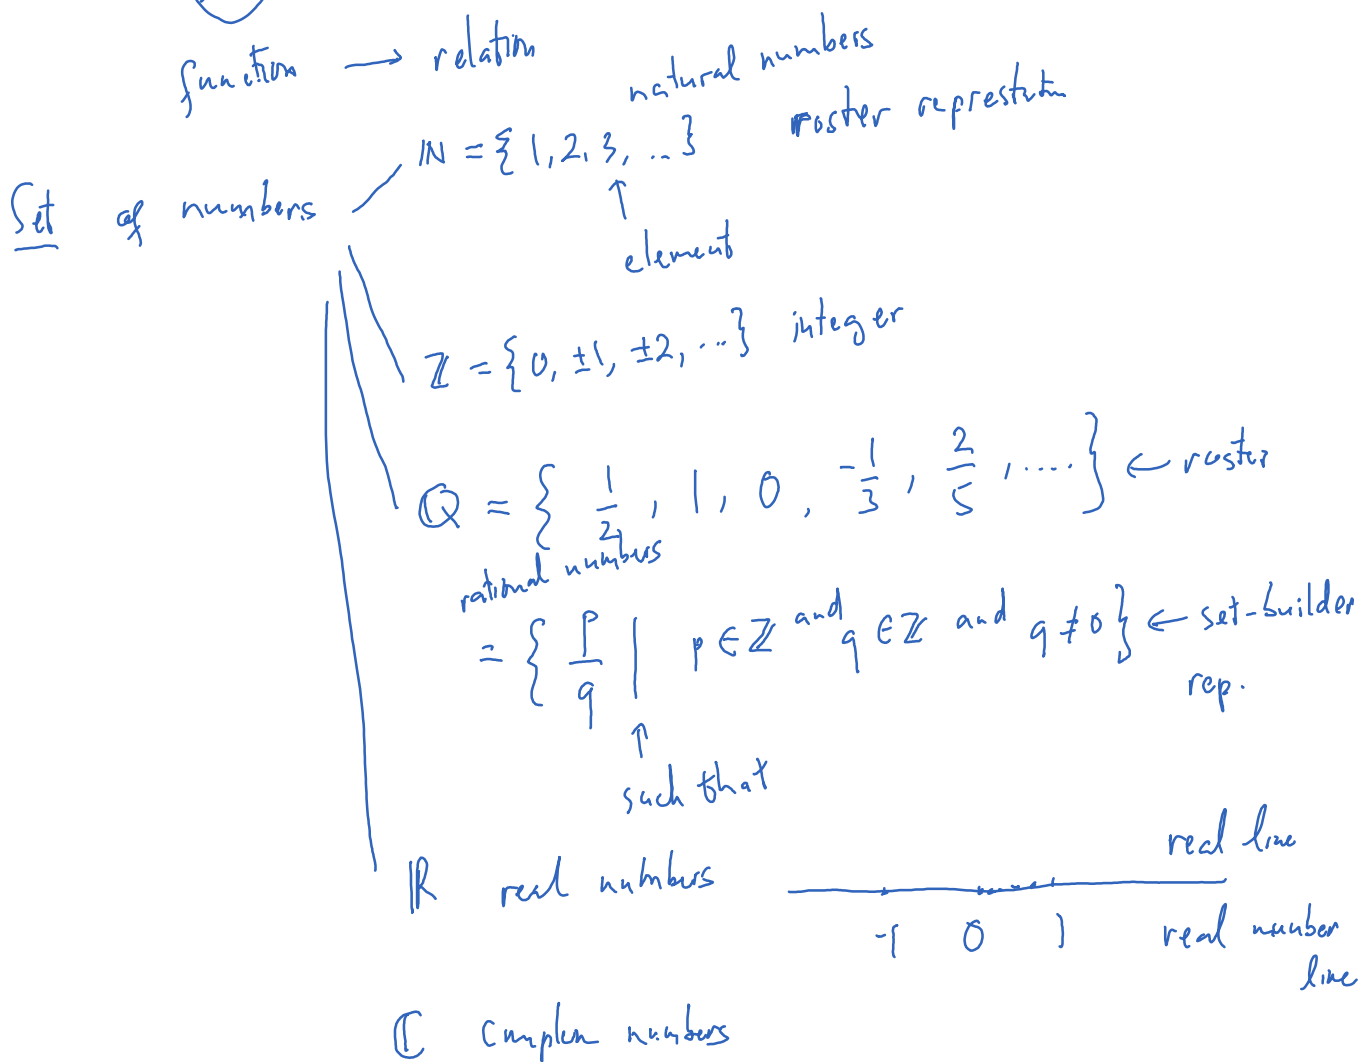 function → relation
natural numbers
ℕ = { 1, 2, 3, .. } roster represtutn
↑
element
Set of numbers
ℤ = { 0, ±1, ±2, ... } integer
ℚ = { 1/2, 1, 0, -1/3, 2/5, .... } ← roster
rational numbers
= { p/q | p ∈ ℤ and q ∈ ℤ and q ≠ 0 } ← set-builder
rep.
↑
such that
ℝ real numbers
real line
-1 0 1
real number
line
ℂ complex numbers